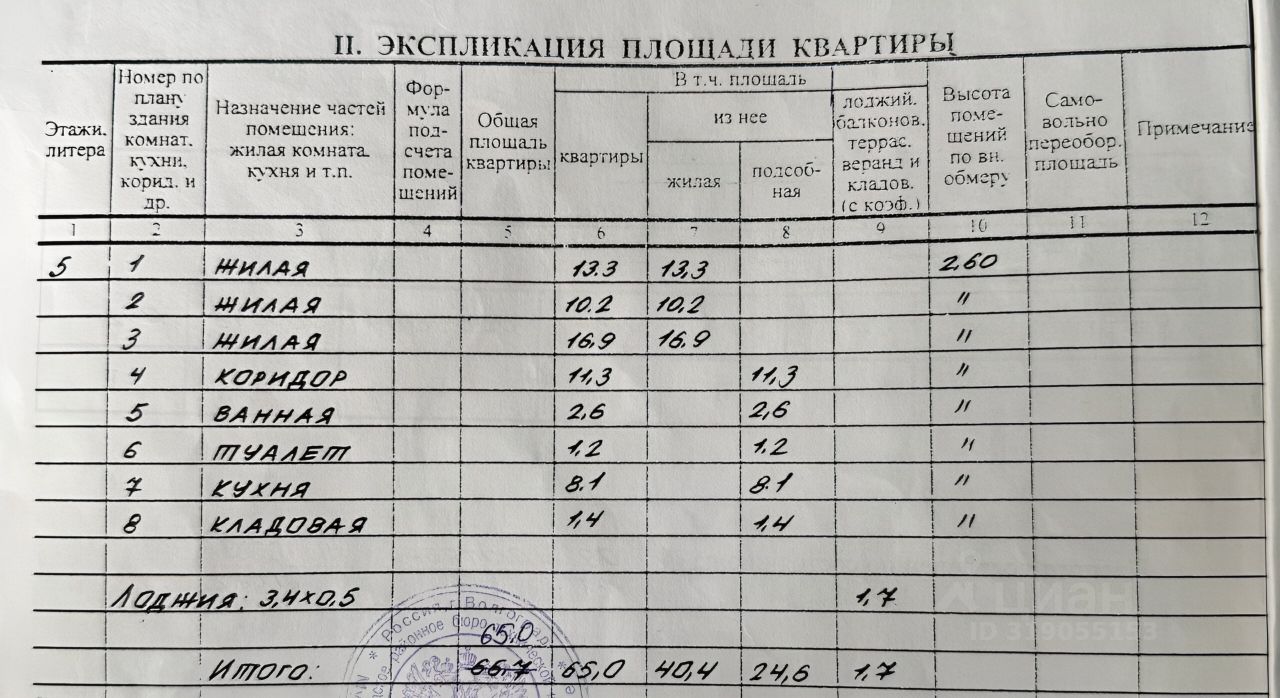 II. ЭКСПЛИКАЦИЯ ПЛОЩАДИ КВАРТИРЫ
Этажи. литера
Номер по плану здания комнат. кухни. корид. и др.
Назначение частей помещения: жилая комната. кухня и т.п.
Фор-мула под-счета поме-щений
Общая площадь квартиры
В т.ч. площадь
квартиры
из нее
жилая
подсоб-ная
лоджий. балконов. террас. веранд и кладов. (с коэф.)
Высота поме-щений по вн. обмеру
Само-вольно переобор. площадь
Примечание
1 2 3 4 5 6 7 8 9 10 11 12
5 1 ЖИЛАЯ 13.3 13,3 2,60
2 ЖИЛАЯ 10.2 10,2 "
3 ЖИЛАЯ 16,9 16.9 "
4 КОРИДОР 11,3 11,3 "
5 ВАННАЯ 2,6 2,6 "
6 ТУАЛЕТ 1,2 1.2 "
7 КУХНЯ 8.1 8.1 "
8 КЛАДОВАЯ 1,4 1,4 "
ЛОДЖИЯ: 3,4×0,5 1,7
65.0
ИТОГО: 66.7 65,0 40,4 24,6 1,7
Россия, г. Волгоград
районное бюро
циан
ID 319055193